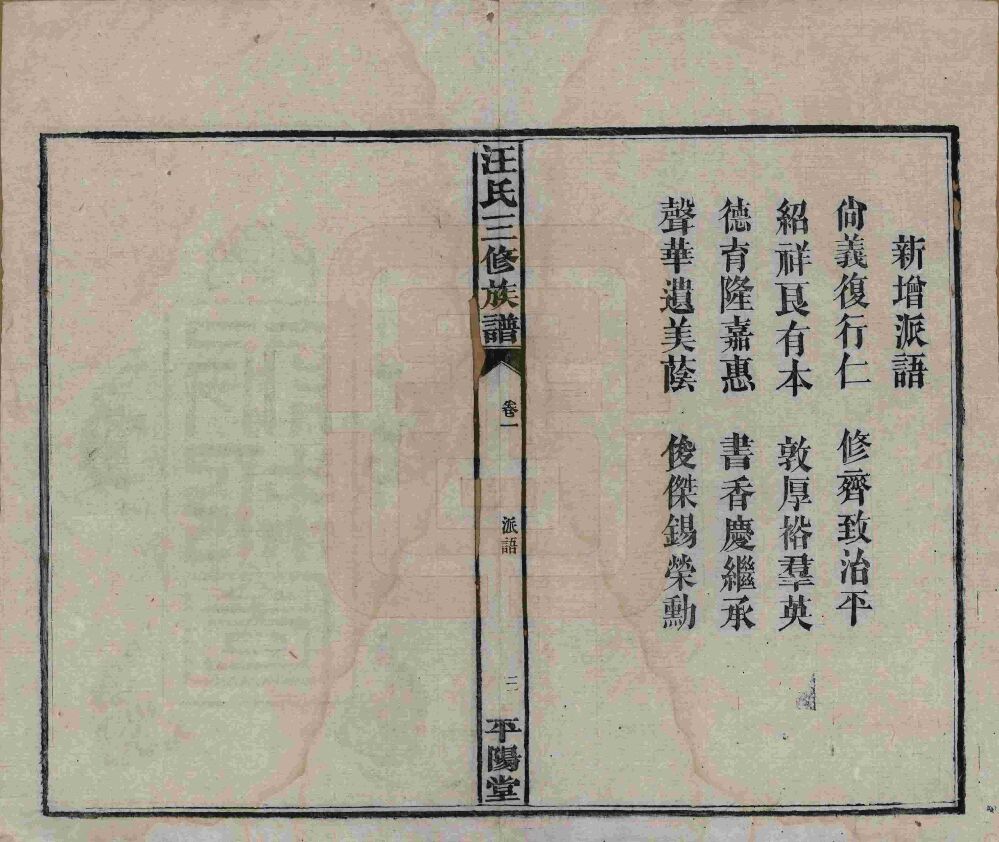 新增派語
尙義復行仁 修齊致治平
紹祥良有本 敦厚裕羣英
德育隆嘉惠 書香慶繼承
聲華遺美蔭 俊傑錫榮勳
汪氏三修族譜 卷一 派語 二 平陽堂